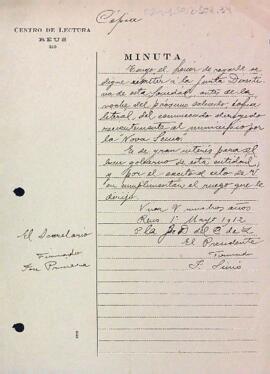 Cópia
CENTRO DE LECTURA
REUS
MINUTA.
Tengo el honor de rogarle se
digne remitir á la Junta Directi
va de esta Sociedad, antes de la
noche del próximo sábado, copia
literal, del comunicado dirigido
recientemente al municipio por
la "Nova Senio".
Es de gran interés para el
buen gobierno de esta entidad
y por el exacto de V.
en cumplimentar el ruego que le
dirijo.
Viva V muchos años
Reus 1º Mayo 1912
P la J D del C de L
El Presidente
El Secretario
Firmado
Firmado